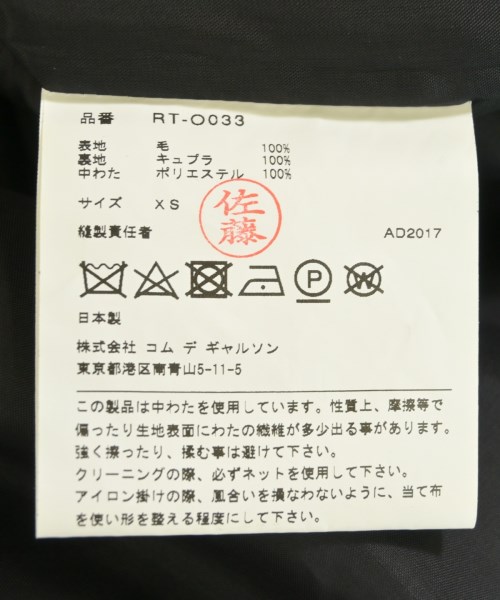 品番 RT-O033
表地 毛 100%
裏地 キュプラ 100%
中わた ポリエステル 100%
サイズ XS
佐藤
縫製責任者 AD2017
P W
日本製
株式会社 コム デ ギャルソン
東京都港区南青山5-11-5
この製品は中わたを使用しています。性質上、摩擦等で
偏ったり生地表面にわたの繊維が多少出る事があります。
強く擦ったり、揉む事は避けて下さい。
クリーニングの際、必ずネットを使用して下さい。
アイロン掛けの際、風合いを損なわないように、当て布
を使い形を整える程度にして下さい。